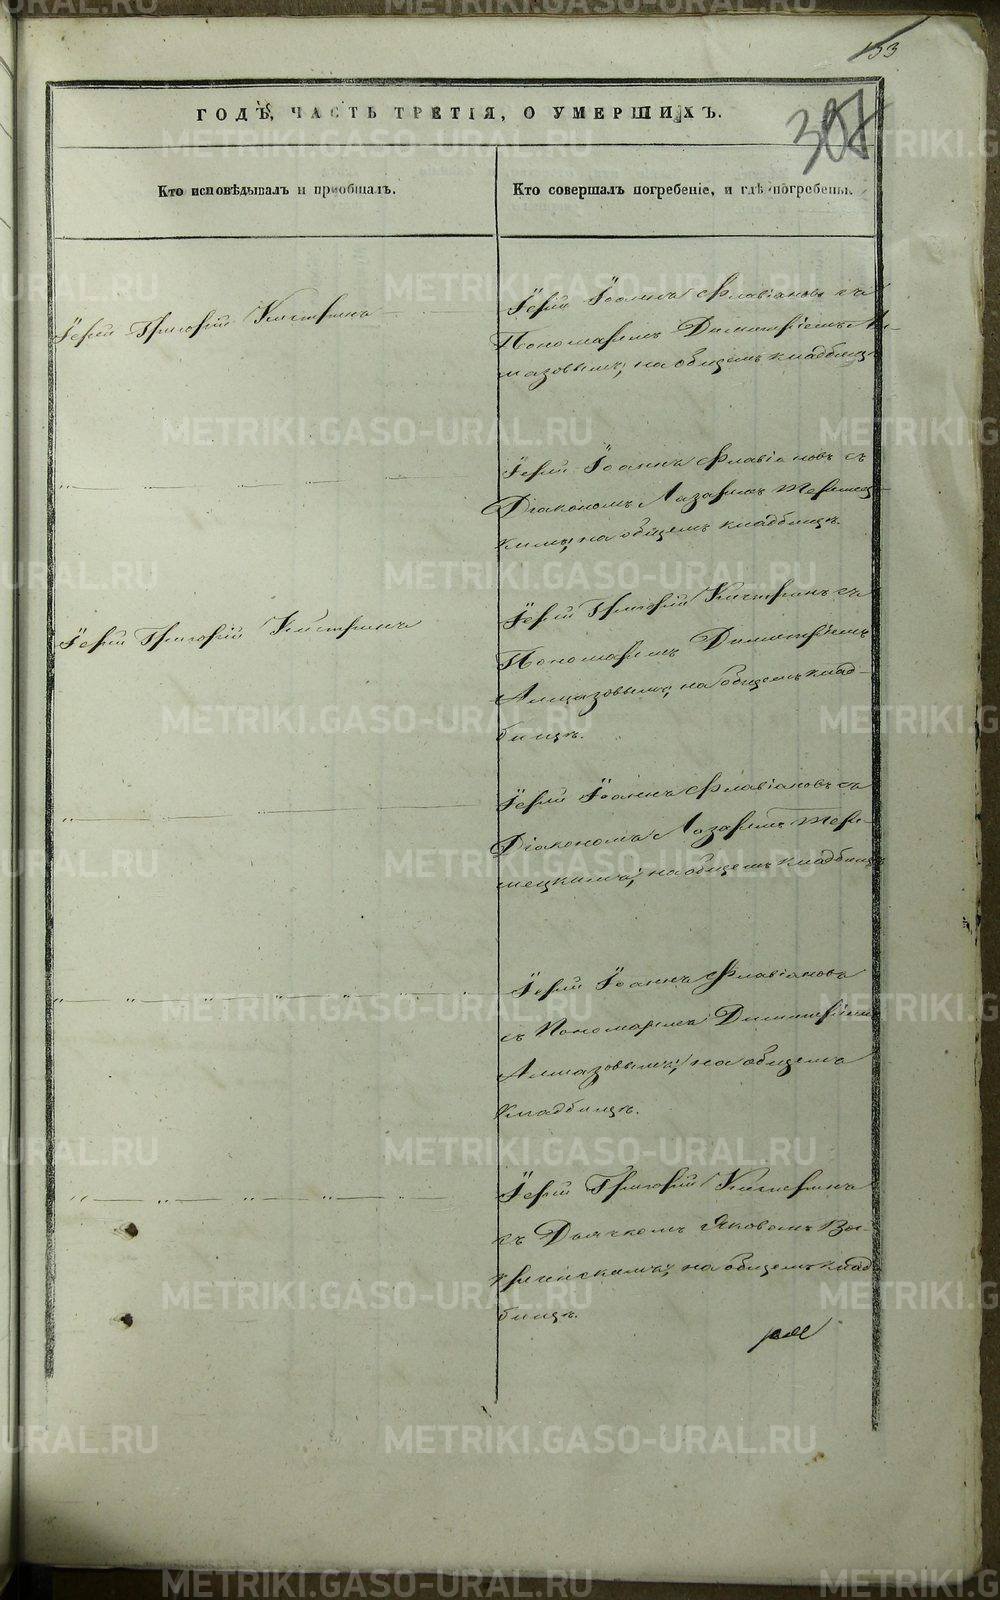 153
307
ГОДѢ, ЧАСТЬ ТРЕТІЯ, О УМЕРШИХЪ.
Кто исповѣдывалъ и пріобщалъ.
Кто совершалъ погребеніе, и гдѣ погребены.
Іерей Григорій
Іерей Іоаннъ Флавіановъ съ
Пономаремъ Димитріемъ Ал-
мазовымъ, на общемъ кладбищѣ
Іерей Іоаннъ Флавіановъ съ
Діакономъ Лазаремъ
на общемъ кладбищѣ.
Іерей Григорій
Іерей Григорій съ
Пономаремъ Димитріемъ
Алмазовымъ, на общемъ клад-
бищѣ.
Іерей Іоаннъ Флавіановъ съ
Діакономъ Лазаремъ
на общемъ кладбищѣ
Іерей Іоаннъ Флавіановъ
съ Пономаремъ Димитріемъ
Алмазовымъ, на общемъ
кладбищѣ.
Іерей Григорій
съ Дьячкомъ Яковомъ
на общемъ клад
бищѣ.
METRIKI.GASO-URAL.RU